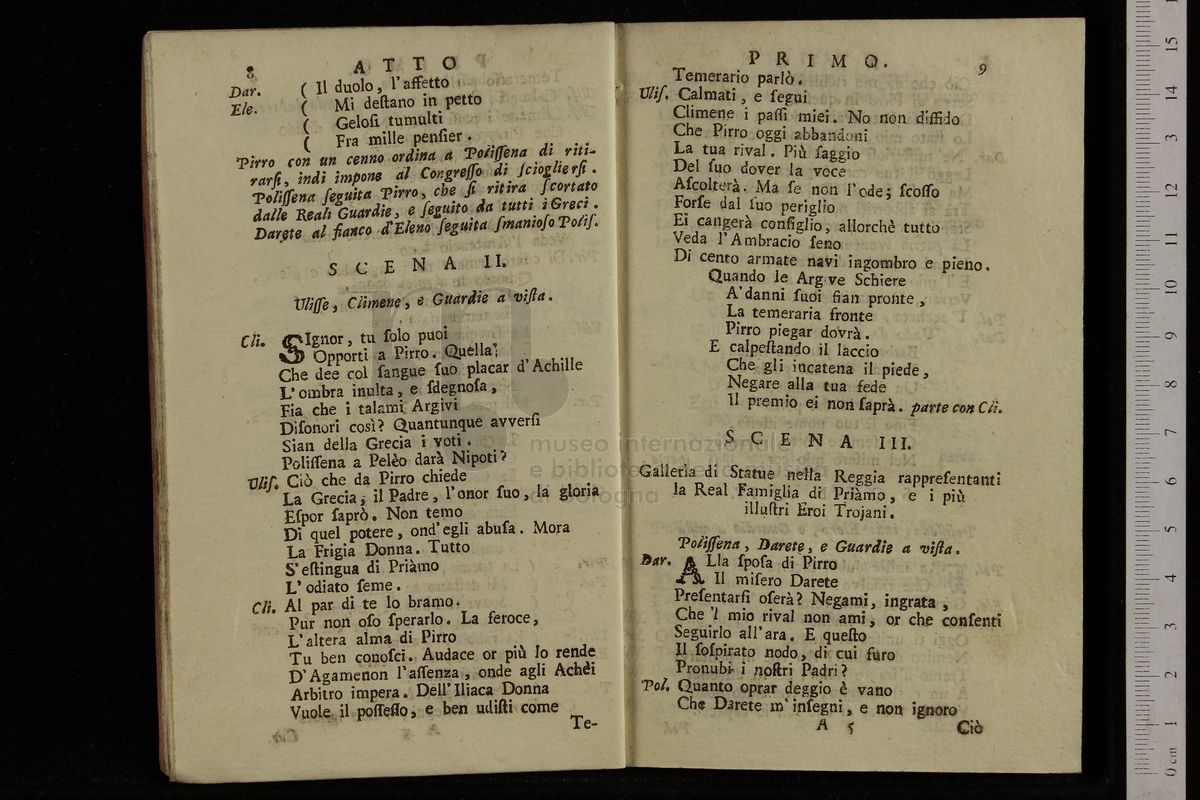 8 ATTO
Dar. ( Il duolo, l'affetto
Ele. ( Mi deſtano in petto
( Geloſi tumulti
( Fra mille penſier.
Pirro con un cenno ordina a Poliſſena di riti-
rarſi, indi impone al Congreſſo di ſcioglierſi.
Poliſſena ſeguita Pirro, che ſi ritira ſcortato
dalle Reali Guardie, e ſeguito da tutti i Greci.
Darete al fianco d'Eleno ſeguita ſmanioſo Poliſ.
SCENA II.
Uliſſe, Climene, e Guardie a viſta.
Cli. SIgnor, tu ſolo puoi
Opporti a Pirro. Quella,
Che dee col ſangue ſuo placar d'Achille
L'ombra inulta, e ſdegnoſa,
Fia che i talami Argivi
Diſonori così? Quantunque avverſi
Sian della Grecia i voti.
Poliſſena a Pelèo darà Nipoti?
Uliſ. Ciò che da Pirro chiede
La Grecia, il Padre, l'onor ſuo, la gloria
Eſpor ſaprò. Non temo
Di quel potere, ond'egli abuſa. Mora
La Frigia Donna. Tutto
S'eſtingua di Priàmo
L'odiato ſeme.
Cli. Al par di te lo bramo.
Pur non oſo ſperarlo. La feroce,
L'altera alma di Pirro
Tu ben conoſci. Audace or più lo rende
D'Agamenon l'aſſenza, onde agli Achèi
Arbitro impera. Dell'Iliaca Donna
Vuole il poſſeſſo, e ben udiſti come
Te-
PRIMO. 9
Temerario parlò.
Uliſ. Calmati, e ſegui
Climene i paſſi miei. No non diffido
Che Pirro oggi abbandoni
La tua rival. Più ſaggio
Del ſuo dover la voce
Aſcolterà. Ma ſe non l'ode; ſcoſſo
Forſe dal ſuo periglio
Ei cangerà conſiglio, allorchè tutto
Veda l'Ambracio ſeno
Di cento armate navi ingombro e pieno.
Quando le Argive Schiere
A'danni ſuoi ſian pronte,
La temeraria fronte
Pirro piegar dovrà.
E calpeſtando il laccio
Che gli incatena il piede,
Negare alla tua fede
Il premio ei non ſaprà. parte con Cli.
SCENA III.
Gallerìa di Statue nella Reggia rappreſentanti
la Real Famiglia di Priàmo, e i più
illuſtri Eroi Trojani.
Poliſſena, Darete, e Guardie a viſta.
Dar. ALla ſpoſa di Pirro
Il miſero Darete
Preſentarſi oſerà? Negami, ingrata,
Che 'l mio rival non ami, or che conſenti
Seguirlo all'ara. E queſto
Il ſoſpirato nodo, di cui furo
Pronubi i noſtri Padri?
Pol. Quanto oprar deggio è vano
Che Darete m'inſegni, e non ignoro
A 5 Ciò
museo internazionale
e biblioteca della musica
di bologna
0 cm 1 2 3 4 5 6 7 8 9 10 11 12 13 14 15